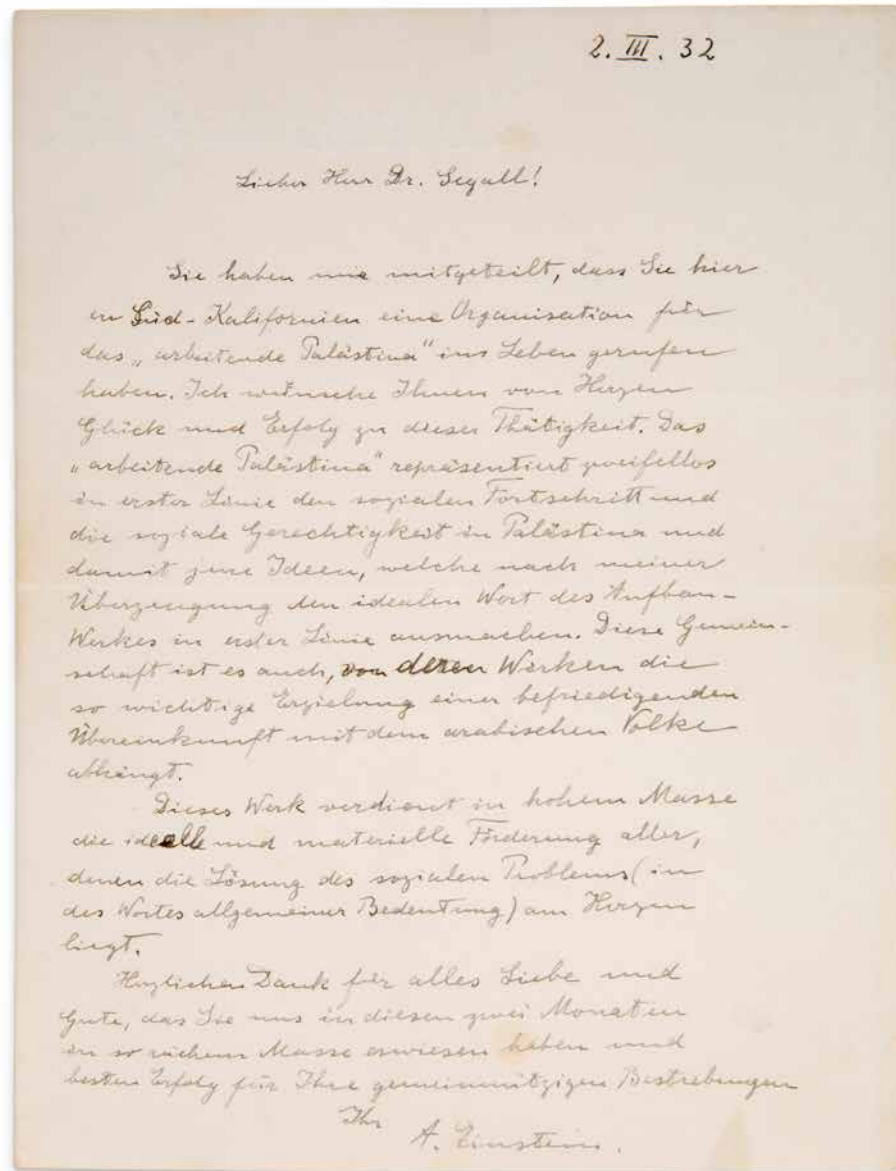 2. III. 32
Lieber Herr Dr. Segall!
Sie haben mir mitgeteilt, dass Sie hier
in Süd-Kalifornien eine Organisation für
das „arbeitende Palästina" ins Leben gerufen
haben. Ich wünsche Ihnen von Herzen
Glück und Erfolg zu dieser Thätigkeit. Das
„arbeitende Palästina" repräsentiert zweifellos
in erster Linie den sozialen Fortschritt und
die soziale Gerechtigkeit in Palästina und
damit jene Ideen, welche nach meiner
Überzeugung den idealen Wert des Aufbau-
Werkes in erster Linie ausmachen. Diese Gemein-
schaft ist es auch, von deren Wirken die
so wichtige Erzielung einer befriedigenden
Übereinkunft mit dem arabischen Volke
abhängt.
Dieses Werk verdient in hohem Masse
die ideelle und materielle Förderung aller,
denen die Lösung des sozialen Problems (in
des Wortes allgemeiner Bedeutung) am Herzen
liegt.
Herzlichen Dank für alles Liebe und
Gute, das Sie uns in diesen zwei Monaten
in so reichem Masse erwiesen haben und
besten Erfolg für Ihre gemeinnützigen Bestrebungen
Ihr
A. Einstein.